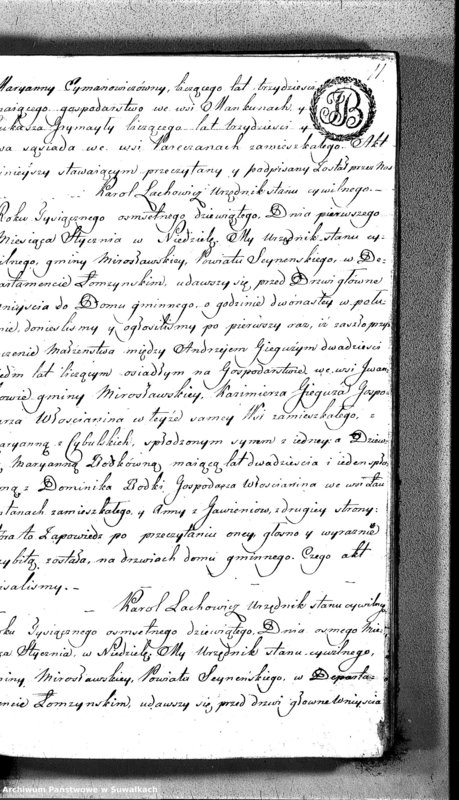 11
Maryanny Cymanowiczówny, liczącego lat trzydzieści
maiącego gospodarstwo we wsi Mankunach, y
Łukasza Grymayły liczącego lat trzydzieści y
wa sąsiada we wsi Pareczanach zamieszkałego. Akt
niniejszy stawaiącym przeczytany y podpisany został przez Nas
Karol Lachowicz Urzędnik stanu cywilnego.
Roku Tysiącznego osmsetnego Dziewiątego. Dnia pierwszego
Miesiąca Stycznia w Niedzielę. My Urzędnik stanu cy-
wilnego, gminy Mirosławskiey, Powiatu Seynenskiego, w De-
partamencie Łomzynskim, udawszy się przed Drzwi główne
wniyścia do Domu gminnego, o godzinie dwónastey w połu-
dnie, donieslismy y ogłosilismy po pierwszy oraz, iż zaszło przy-
rzeczenie małżeństwa między Andrzejem Giegużym dwadzieści
siedm lat liczącym osiadłym na Gospodarstwie we wsi
gminy Mirosławskiey, Kazimierza Gieguża Gospo-
darza Włoscianina w teyże samey Wsi zamieszkałego, z
Maryanną z Cybulskich, spłodzonym synem z iedney: a Dziewi-
cą Maryanną Bodkówną maiącą lat dwadzieścia i ieden spło-
dzoną z Dominika Bodki Gospodarza Włoscianina we wsi
zamieszkałego, y Anny z Jawreniow, z drugiey strony:
która to Zapowiedz po przeczytaniu oney, głosno y wyraznie
przybitą została, na drzwiach domu gminnego. Czego akt
spisalismy.
Karol Lachowicz Urzędnik stanu cywilneg
Roku Tysiącznego osmsetnego dziewiątego, Dnia osmego Mie-
siąca Stycznia, w Niedzielę, My Urzędnik stanu cywilnego,
gminy Mirosławskiey, Powiatu Seynenskiego, w Departa-
mencie Łomzynskim, udawszy się przed drzwi głowne wniyścia
Archiwum Państwowe w Suwałkach